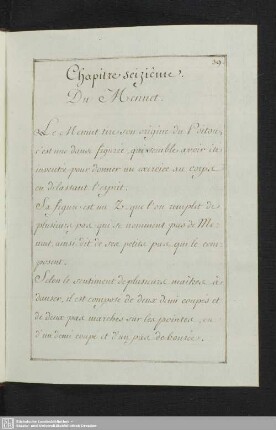 39.
Chapitre seizième.
Du Menuet.
Le Menuet tire son origine du Poitou,
c'est une danse figurée, qui semble avoir été
inventée pour donner un exercice au corps
en délassant l'esprit.
Sa figure est un Z, que l'on remplit de
plusieurs pas, qui se nomment pas de Me-
nuet, ainsi dit de ses petits pas qui le com-
posent.
Selon le sentiment de plusieurs maîtres à
danser, il est composé de deux demi coupés et
de deux pas marchés sur les pointes, ou
d'un demi coupé et d'un pas de bourée.